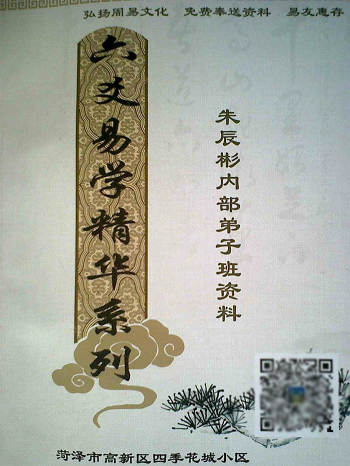 弘扬周易文化 免费奉送资料 易友惠存
六爻易学精华系列
朱辰彬内部弟子班资料
菏泽市高新区四季花城小区